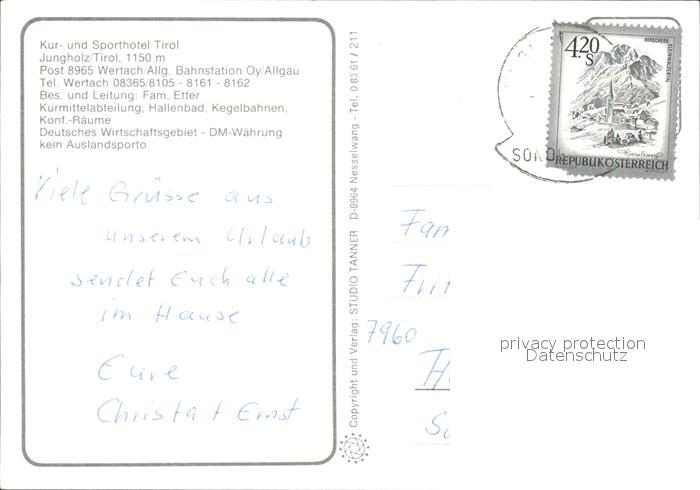 Kur- und Sporthotel Tirol
Jungholz/Tirol, 1150 m
Post 8965 Wertach/Allg. Bahnstation Oy/Allgäu
Tel. Wertach 08365/8105 - 8161 - 8162
Bes. und Leitung: Fam. Etter
Kurmittelabteilung, Hallenbad, Kegelbahnen,
Konf.-Räume
Deutsches Wirtschaftsgebiet - DM-Währung
kein Auslandsporto
Viele Grüsse aus
unserem Urlaub
sendet Euch alle
im Hause
Eure
Christa + Ernst
Copyright und Verlag: STUDIO TANNER D-8964 Nesselwang · Tel. 0 83 61 / 211
4.20
S
REPUBLIK ÖSTERREICH
Fam
7960
privacy protection
Datenschutz